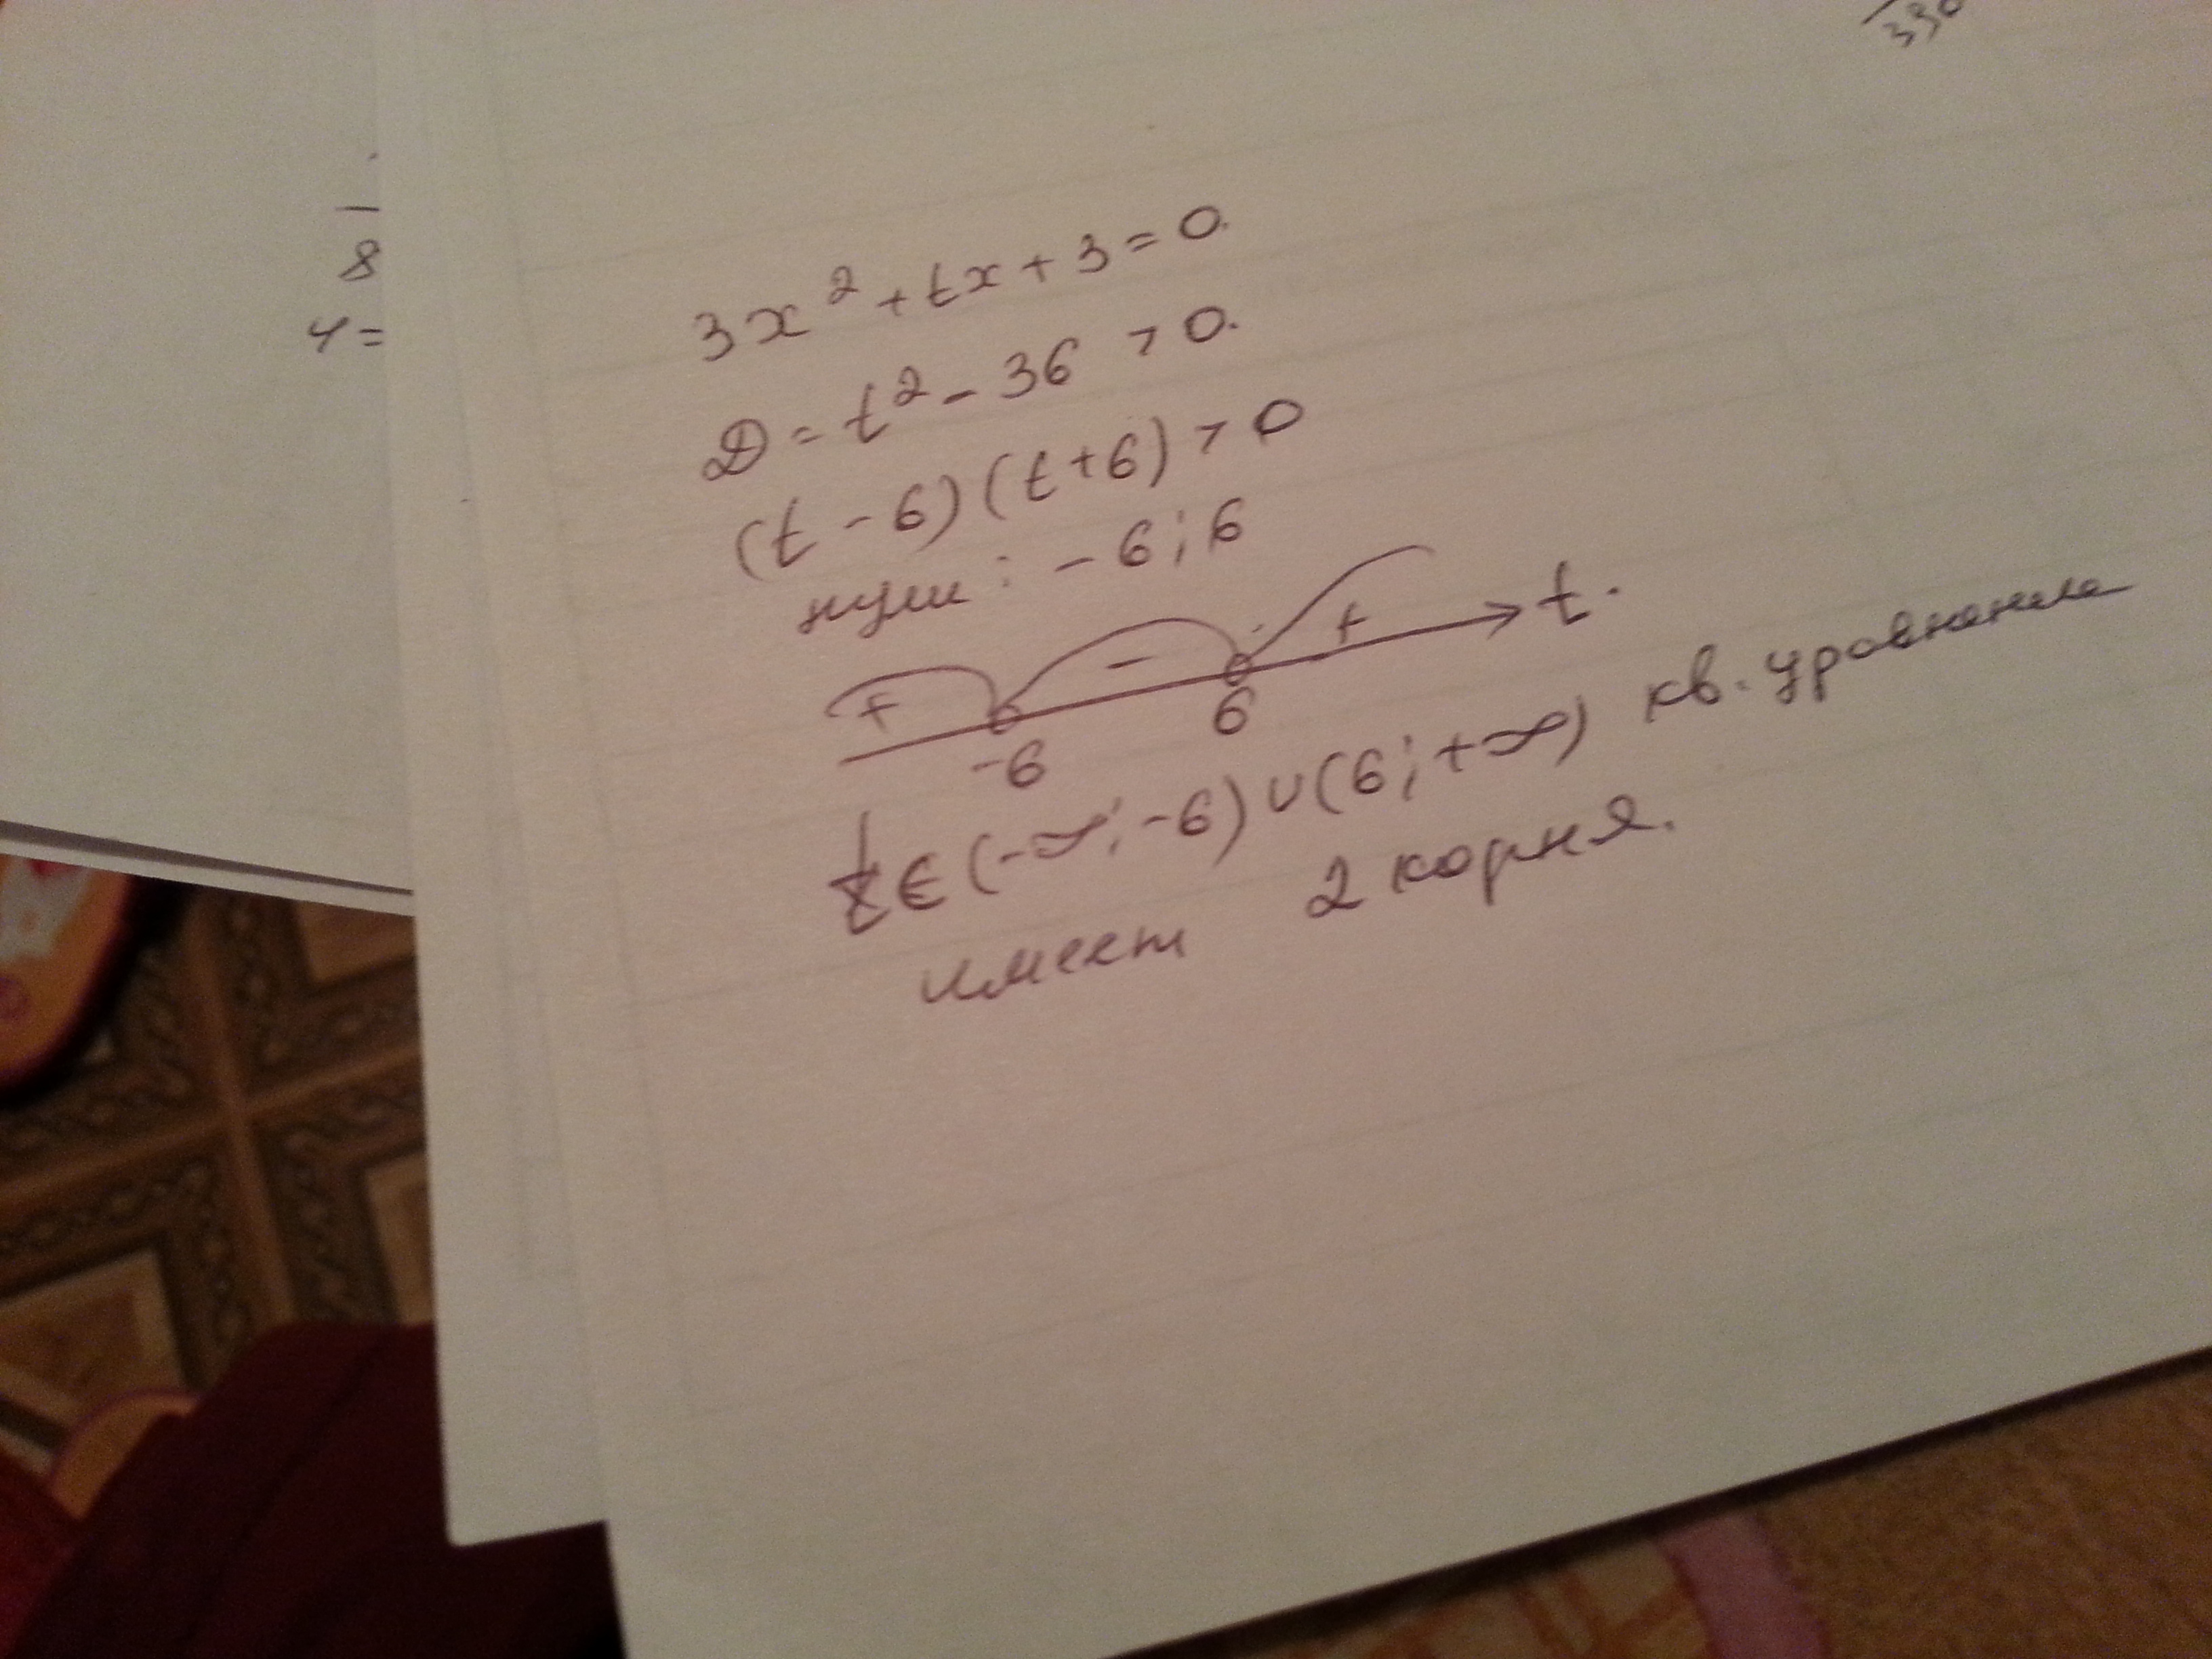 390
8
4=
3x² + tx + 3 = 0.
D = t² - 36 > 0.
(t - 6)(t + 6) > 0
нули: - 6; 6
+ - + t.
-6 6
t ∈ (-∞; -6) ∪ (6; +∞) кв. уравнение
имеет 2 корня.